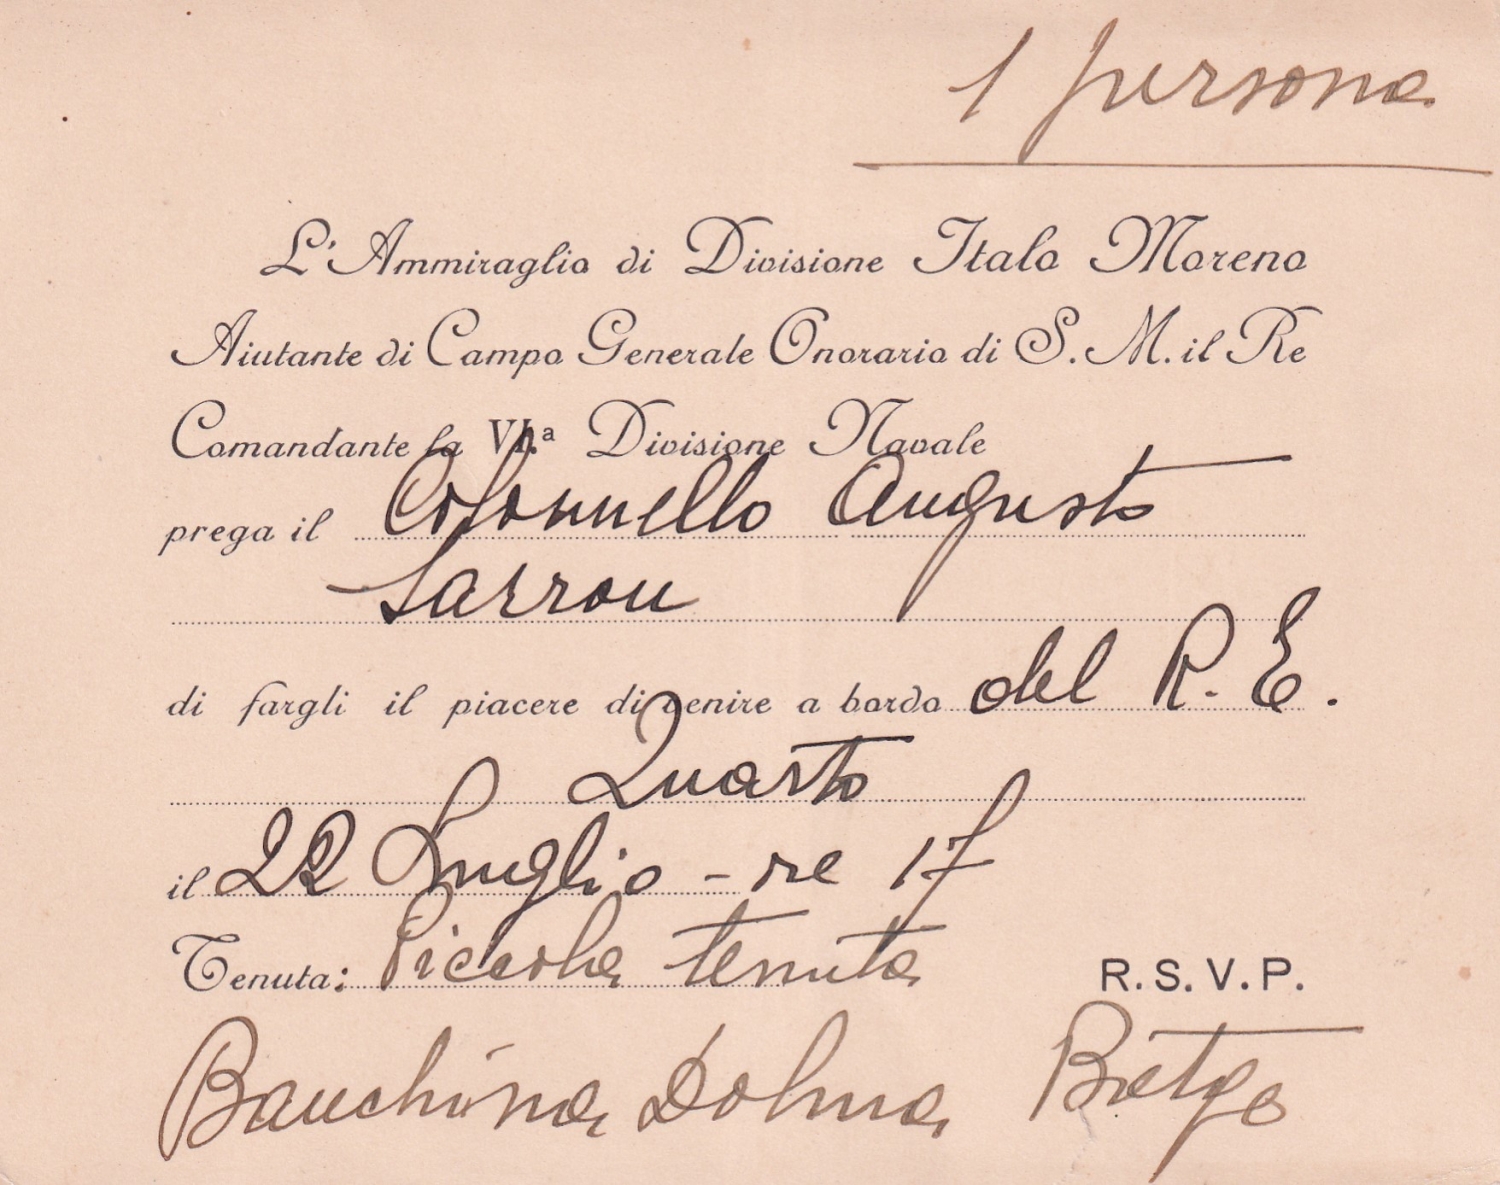 1 persona
L'Ammiraglio di Divisione Italo Moreno
Aiutante di Campo Generale Onorario di S. M. il Re
Comandante la VI.ª Divisione Navale
prega il Colonnello Augusto
Sarrou
di fargli il piacere di venire a bordo del R. E.
Quarto
il 22 Luglio - re 17
Tenuta: Piccola tenuta
R. S. V. P.
Banchina Dolma